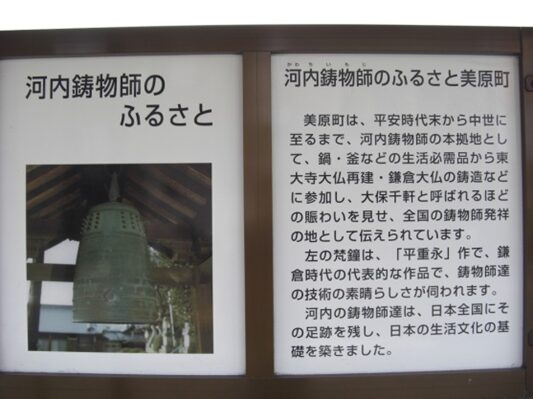 河内鋳物師の
ふるさと
かわちいもじ
河内鋳物師のふるさと美原町
美原町は、平安時代末から中世に
至るまで、河内鋳物師の本拠地とし
て、鍋・釜などの生活必需品から東
大寺大仏再建・鎌倉大仏の鋳造など
に参加し、大保千軒と呼ばれるほど
の賑わいを見せ、全国の鋳物師発祥
の地として伝えられています。
左の梵鐘は、「平重永」作で、鎌
倉時代の代表的な作品で、鋳物師達
の技術の素晴らしさが伺われます。
河内の鋳物師達は、日本全国にそ
の足跡を残し、日本の生活文化の基
礎を築きました。